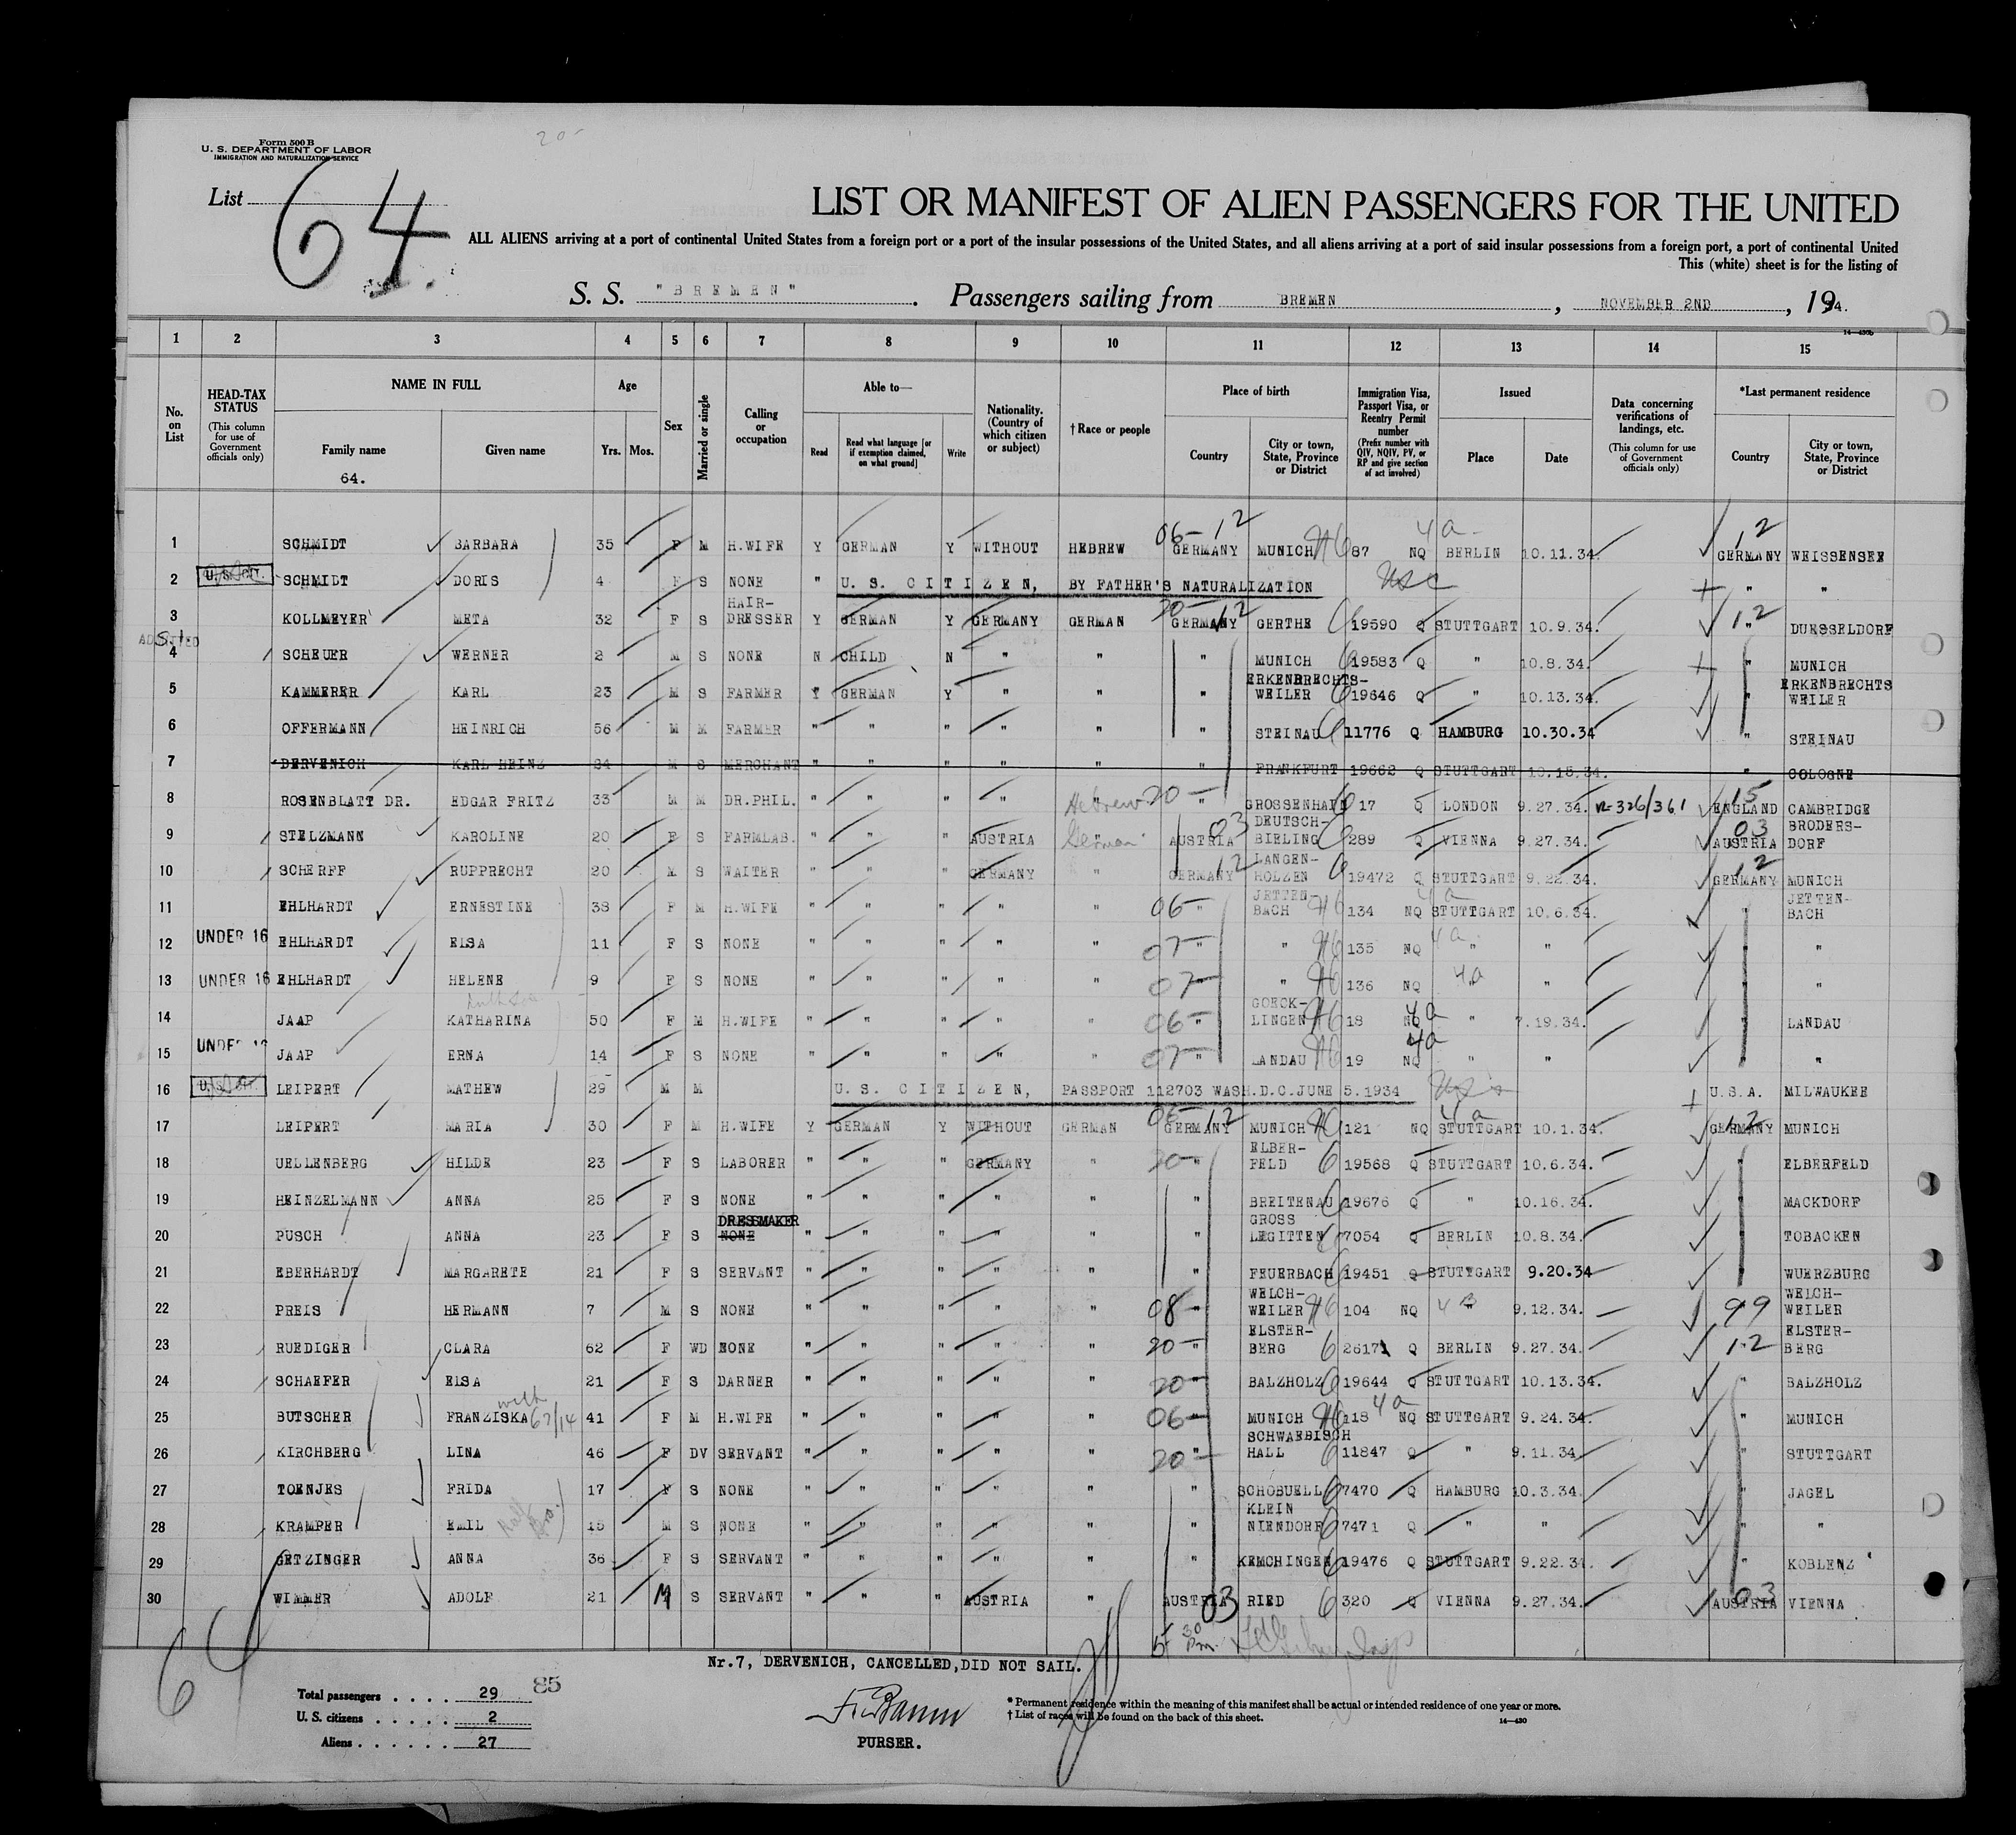 20-
Form 500 B
U. S. DEPARTMENT OF LABOR
IMMIGRATION AND NATURALIZATION SERVICE
List 64
LIST OR MANIFEST OF ALIEN PASSENGERS FOR THE UNITED
ALL ALIENS arriving at a port of continental United States from a foreign port or a port of the insular possessions of the United States, and all aliens arriving at a port of said insular possessions from a foreign port, a port of continental United
This (white) sheet is for the listing of
S. S. "BREMEN". Passengers sailing from BREMEN, NOVEMBER 2ND, 1934.
14—430b
1 2 3 4 5 6 7 8 9 10 11 12 13 14 15
No. on List
HEAD-TAX STATUS (This column for use of Government officials only)
NAME IN FULL Family name Given name
64.
Age Yrs. Mos.
Sex
Married or single
Calling or occupation
Able to— Read Read what language [or if exemption claimed, on what ground] Write
Nationality. (Country of which citizen or subject)
† Race or people
Place of birth Country City or town, State, Province or District
Immigration Visa, Passport Visa, or Reentry Permit number (Prefix number with QIV, NQIV, PV, or RP and give section of act involved)
Issued Place Date
Data concerning verifications of landings, etc. (This column for use of Government officials only)
*Last permanent residence Country City or town, State, Province or District
1 SCHMIDT BARBARA 35 F M H.WIFE Y GERMAN Y WITHOUT HEBREW 06- 12 GERMANY MUNICH H6 87 NQ 4a BERLIN 10.11.34. 12 GERMANY WEISSENSEE
2 U.S. CIT. SCHMIDT DORIS 4 F S NONE " U.S. CITIZEN, BY FATHER'S NATURALIZATION USC " "
3 KOLLMEYER META 32 F S HAIR-DRESSER Y GERMAN Y GERMANY GERMAN 20- 12 GERMANY GERTHE 6 19590 Q STUTTGART 10.9.34. 12 " DUESSELDORF
ADMITTED S.I.
4 SCHEUER WERNER 2 M S NONE N CHILD N " " " MUNICH 6 19583 Q " 10.8.34. " MUNICH
5 KAMMERER KARL 23 M S FARMER Y GERMAN Y " " " ERKENBRECHTS-WEILER 6 19646 Q " 10.13.34. " ERKENBRECHTS WEILER
6 OFFERMANN HEINRICH 56 M M FARMER " " " " " " STEINAU 6 11776 Q HAMBURG 10.30.34 " STEINAU
7 DERVENICH KARL HEINZ 24 M S MERCHANT " " " " " " FRANKFURT 19662 Q STUTTGART 10.15.34. " COLOGNE
8 ROSENBLATT DR. EDGAR FRITZ 33 M M DR.PHIL. " " " " " Hebrew 20- " GROSSENHAIN 6 17 Q LONDON 9.27.34. VL-326/361 15 ENGLAND CAMBRIDGE
9 STELZMANN KAROLINE 20 F S FARMLAB. " " " AUSTRIA " German 03 AUSTRIA DEUTSCH-BIELING 6 289 Q VIENNA 9.27.34. 03 AUSTRIA BRODERS-DORF
10 SCHERFF RUPPRECHT 20 M S WAITER " " " GERMANY " 12 GERMANY LANGEN-HOLZEN 6 19472 Q STUTTGART 9.22.34. 12 GERMANY MUNICH
11 EHLHARDT ERNESTINE 38 F M H.WIFE " " " " " 06- " JETTEN-BACH H6 134 NQ 4a STUTTGART 10.6.34. " JETTEN-BACH
12 UNDER 16 EHLHARDT ELSA 11 F S NONE " " " " " 07- " " H6 135 NQ 4a " " " "
13 UNDER 16 EHLHARDT HELENE 9 F S NONE " " " " " 07- " " H6 136 NQ 4a " " " "
14 JAAP KATHARINA 50 F M H.WIFE " " " " " 06- " GOECK-LINGEN H6 18 NQ 4a " 7.19.34. " LANDAU
15 UNDER 16 JAAP ERNA 14 F S NONE " " " " " 07- " LANDAU H6 19 NQ 4a " " " "
16 U.S. CIT. LEIPERT MATHEW 29 M M U.S. CITIZEN, PASSPORT 112703 WASH.D.C.JUNE 5.1934 U.S.A. MILWAUKEE
17 LEIPERT MARIA 30 F M H.WIFE Y GERMAN Y WITHOUT GERMAN 06- 12 GERMANY MUNICH H6 121 NQ 4a STUTTGART 10.1.34. 12 GERMANY MUNICH
18 UELLENBERG HILDE 23 F S LABORER " " " GERMANY " 20- " ELBER-FELD 6 19568 Q STUTTGART 10.6.34. " ELBERFELD
19 HEINZELMANN ANNA 25 F S NONE " " " " " " BREITENAU 6 19676 Q " 10.16.34. " MACKDORF
20 PUSCH ANNA 23 F S DRESSMAKER NONE " " " " " " GROSS LEGITTEN 6 7054 Q BERLIN 10.8.34. " TOBACKEN
21 EBERHARDT MARGARETE 21 F S SERVANT " " " " " " FEUERBACH 6 19451 Q STUTTGART 9.20.34 " WUERZBURG
22 PREIS HERMANN 7 M S NONE " " " " " 08- " WELCH-WEILER H6 104 NQ 4B " 9.12.34. 99 WELCH-WEILER
23 RUEDIGER CLARA 62 F WD NONE " " " " " 20- " ELSTER-BERG 6 26171 Q BERLIN 9.27.34. 12 ELSTER-BERG
24 SCHAEFER ELSA 21 F S DARNER " " " " " 20- " BALZHOLZ 6 19644 Q STUTTGART 10.13.34. " BALZHOLZ
25 BUTSCHER FRANZISKA with 67/14 41 F M H.WIFE " " " " " 06- " MUNICH H6 118 4a NQ STUTTGART 9.24.34. " MUNICH
26 KIRCHBERG LINA 46 F DV SERVANT " " " " " 20- " SCHWAEBISCH HALL 6 11847 Q " 9.11.34. " STUTTGART
27 TOENJES FRIDA 17 F S NONE " " " " " " SCHOBUELL 6 7470 Q HAMBURG 10.3.34. " JAGEL
28 KRAMPER EMIL Half Bro. 15 M S NONE " " " " " " KLEIN NIENDORF 6 7471 Q " " " "
29 GETZINGER ANNA 36 F S SERVANT " " " " " " KEMCHINGEN 6 19476 Q STUTTGART 9.22.34. " KOBLENZ
30 WIMMER ADOLF 21 M S SERVANT " " " AUSTRIA " 03 AUSTRIA RIED 6 320 Q VIENNA 9.27.34. 03 AUSTRIA VIENNA
5 30 Pm.
64
Nr.7, DERVENICH, CANCELLED,DID NOT SAIL.
Total passengers . . . . 29 85
U. S. citizens . . . . . 2
Aliens . . . . . . 27
PURSER.
* Permanent residence within the meaning of this manifest shall be actual or intended residence of one year or more.
† List of races will be found on the back of this sheet.
14—430